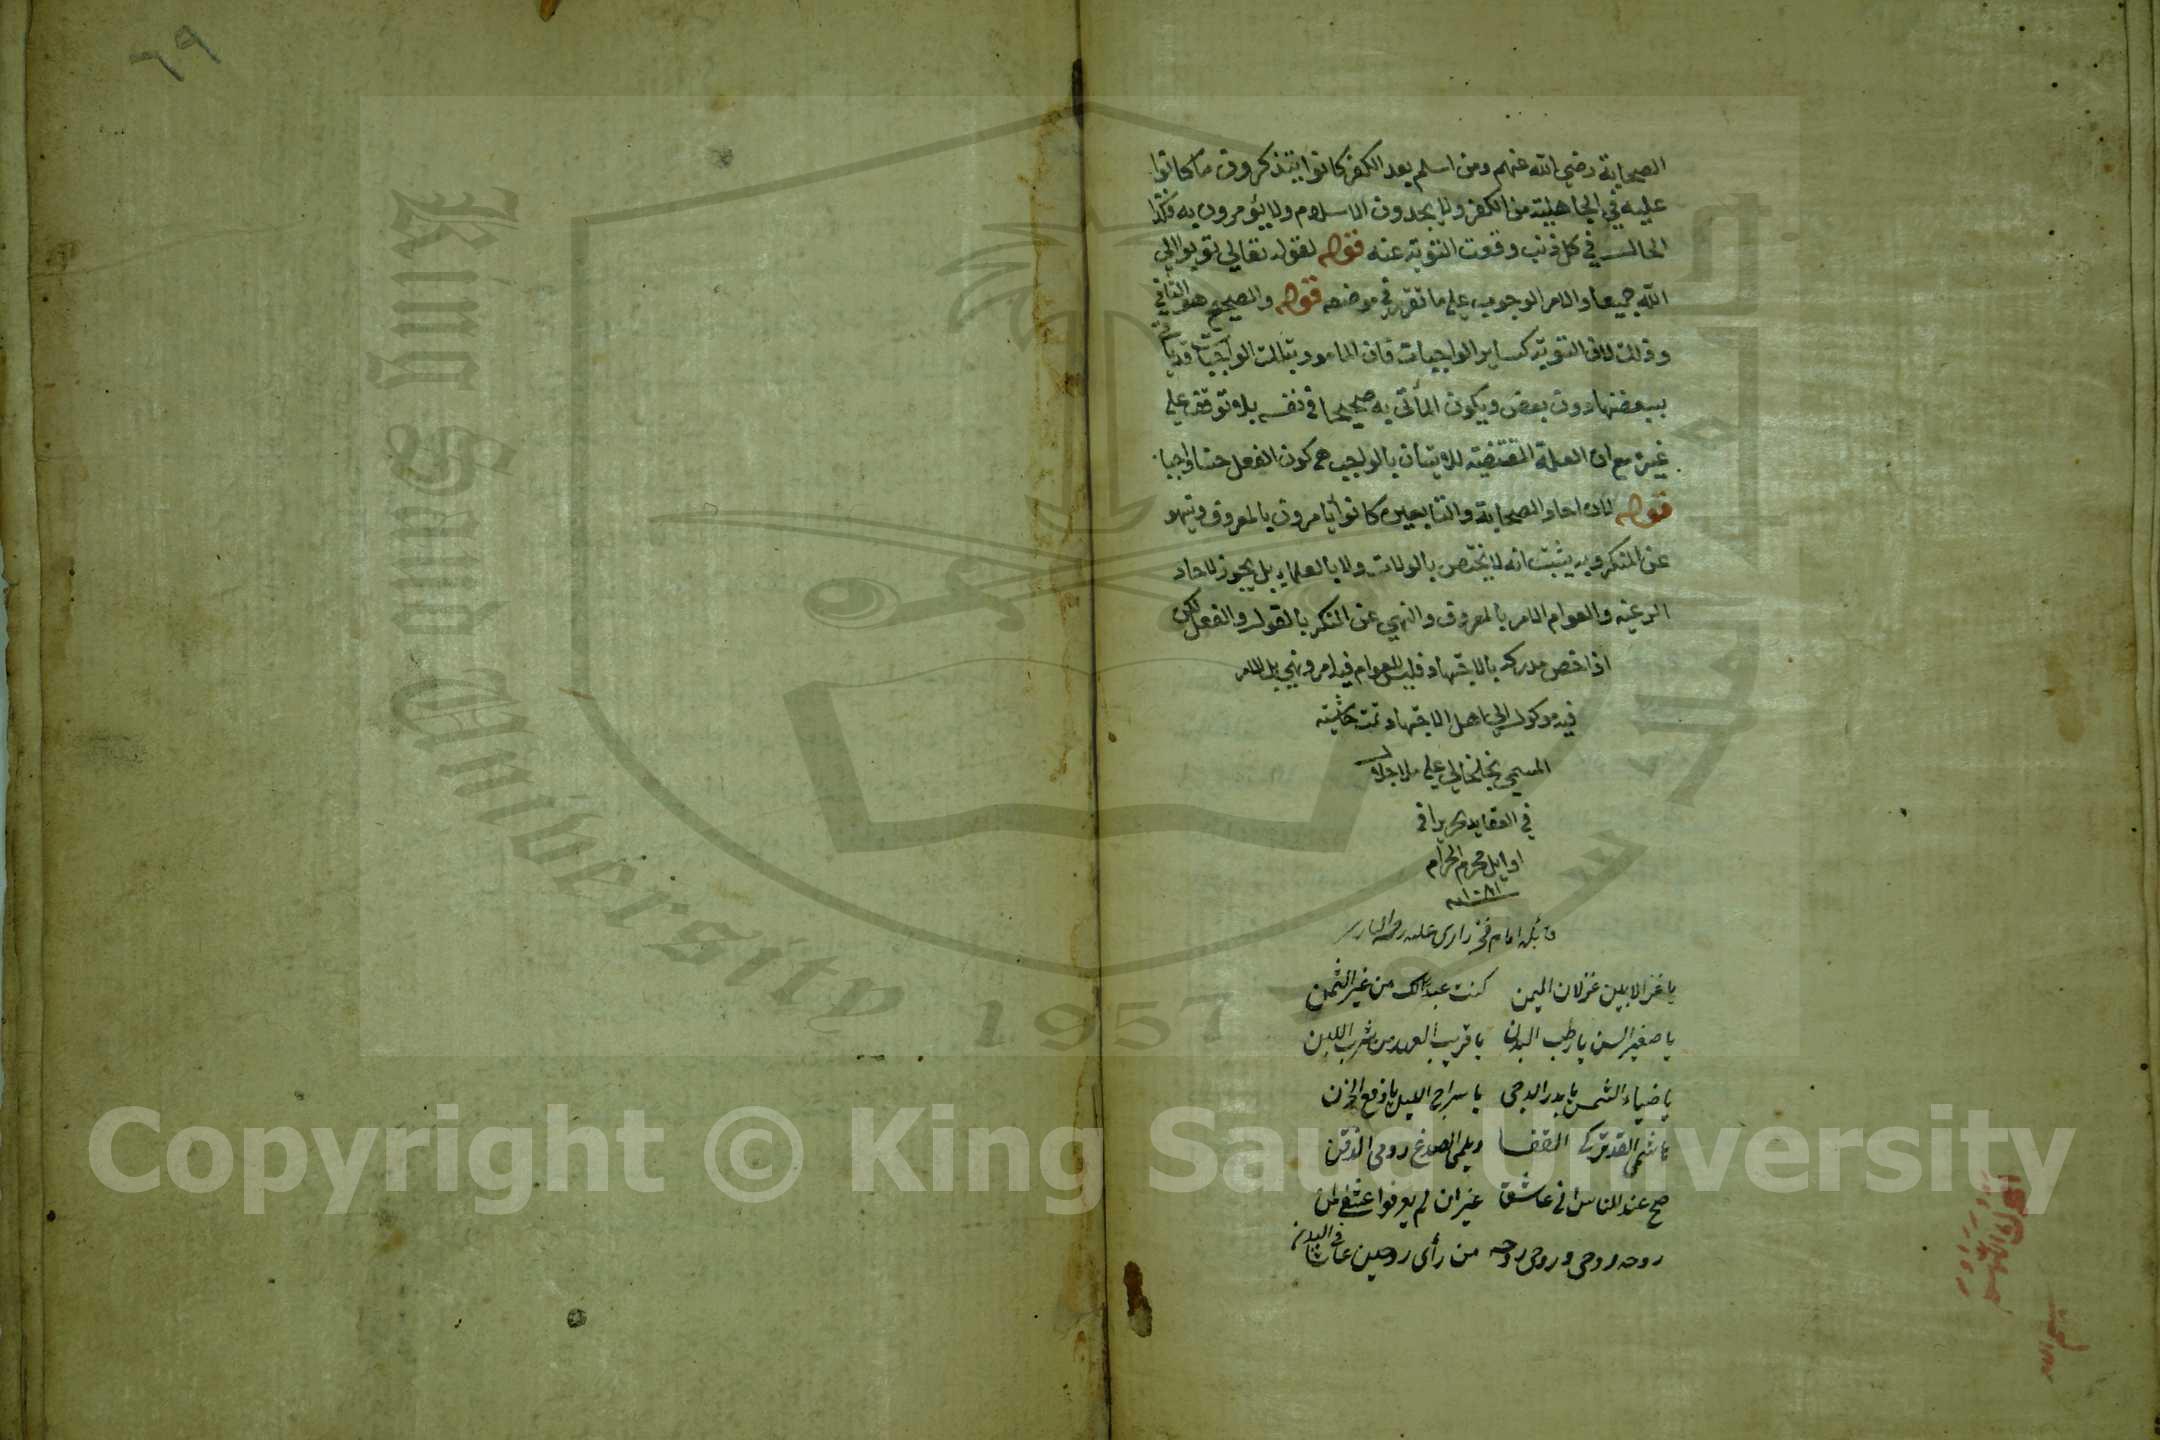 ٦٩
الصحابة رضي الله عنهم ومن اسلم بعد الكفر كانوا يتذكرون ما كانوا
عليه في الجاهلية من الكفر ولا يجددون الاسلام ولا يؤمرون به فكذا
الحال في كل ذنب وقعت التوبة عنه قوله لقوله تعالى توبوا الى
الله جميعا والامر الوجوب على ما تقرر في موضعه قوله والصحيح هو الثاني
وذلك لان التوبة كساير الواجبات فان المامور بتلك الواجبات قد ياتي
ببعضها دون بعض ويكون المأتى به صحيحا في نفسه بلا توقف على
غيره مع ان العلة المقتضية للاتيان بالواجب هي كون الفعل حسنا واجبا
قوله لان احاد الصحابة والتابعين كانوا يامرون بالمعروف وينهو
عن المنكر وبه يثبت انه لا يختص بالولات ولا بالعلماء بل يجوز لاحاد
الرعية والعوام الامر بالمعروف والنهي عن المنكر بالقول والفعل لكن
اذا خص مدركه بالاجتهاد فليس للعوام فيه امر ونهي بل الامر
فيه موكول الى اهل الاجتهاد تمت حاشيته
المسمى بخلخالي على ملا جلال
في العقايد تحريرا في
اوايل محرم الحرام
سنة ١٠٨١
امام فخر رازى عليه رحمة البارى
يا غزالا بين غزلان اليمن كنت عبدا لك من غير الثمن
يا صغير السن يا رطب البدن يا قريب العهد من شرب اللبن
يا ضياء الشمس يا بدر الدجى يا سراج الليل يا دفع الحزن
القد تركي القفا ويلمى الصدغ رومى الذقن
صح عند الناس اني عاشق غير ان لم يعرفوا عشقي لمن
روحه روحى وروحى روحه من رأى روحين عاشا في البدن
King Saud University
1957
Copyright © King Saud University